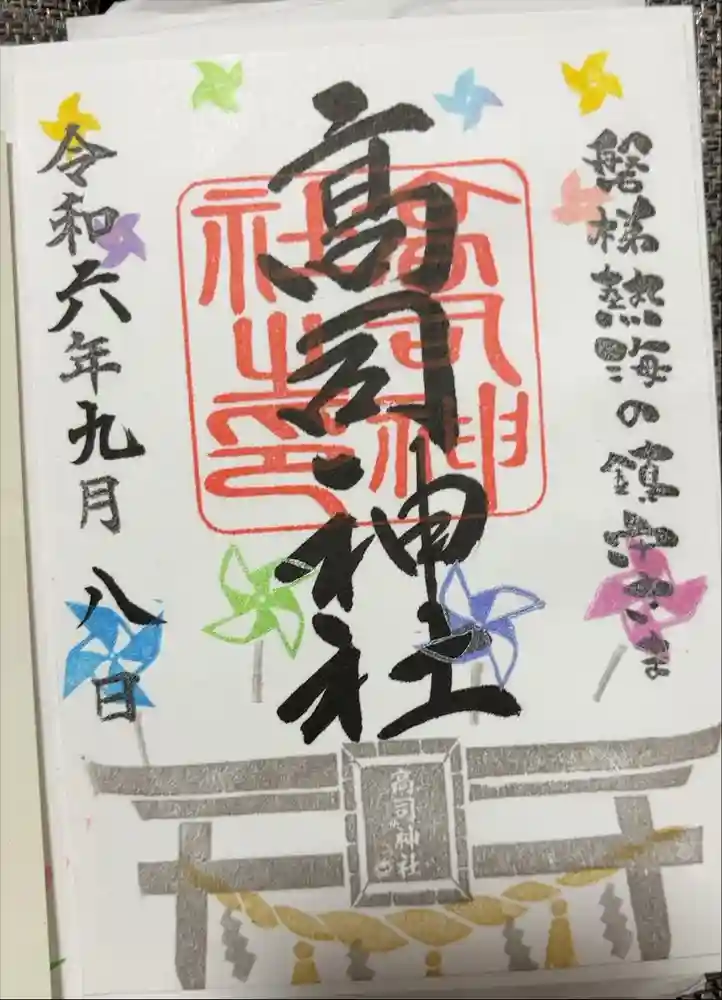 磐梯熱海の鎮守さま
高司神社
高司神
社之印
令和六年九月八日
高司神社